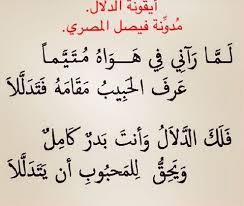 أيقونة الدلال.
مُدوِّنة فيصل المصري.
لَمَّا رَآنِي فِي هَوَاهُ مُتَيَّماً
عَرَفَ الحَبِيبُ مَقَامَهُ فَتَدَلَّلاَ
فَلَكَ الدَّلاَلُ وَأَنتَ بَدرٌ كَامِلٌ
وَيَحِقُّ لِلمَحبُوبِ أَن يَتَدَلَّلاَ